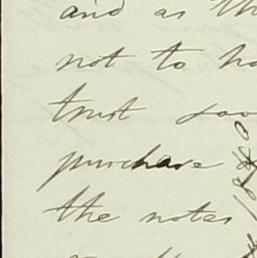 and as th
not to ho
trust soo
purchase a
the notes